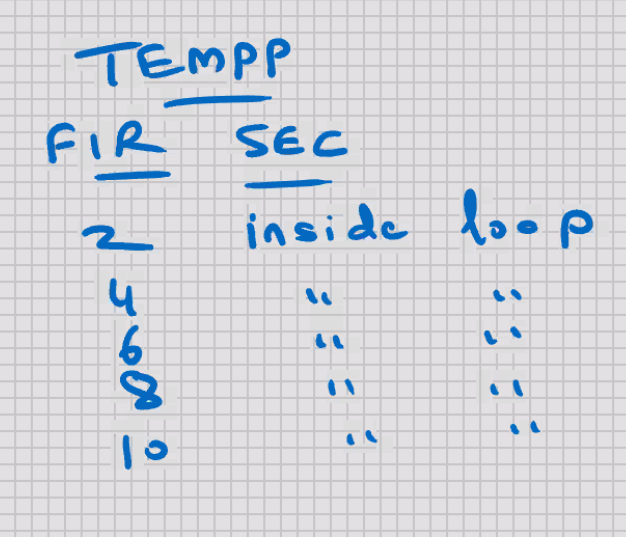 TEMPP
FIR SEC
2 inside loop
4 " "
6 " "
8 " "
10 " "